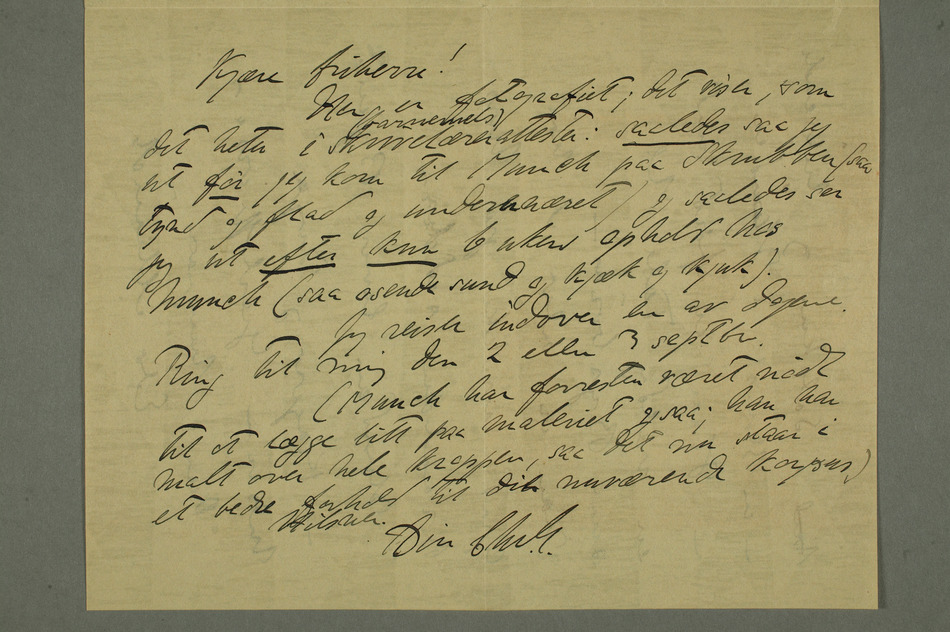 Kjære friherre!
Her er fotografiet; det viser, som
det heter i (barnemels)
skrivelærerattester: saaledes saa jeg
ut før jeg kom til Munch paa Skrubben (saa
tynd og flad og undernæret) og saaledes ser
jeg ut efter kun 6 ukers ophold hos
Munch (saa osende sund og kjæk og kjuk).
Jeg reiser indover en av dagene.
Ring til mig den 2 eller 3 septbr.
(Munch har forresten været nødt
til at lægge litt paa maleriet ogsaa; han har
malt over hele kroppen, saa det nu staar i
et bedre forhold til dit nuværende korpus)
Hilsen.
Din